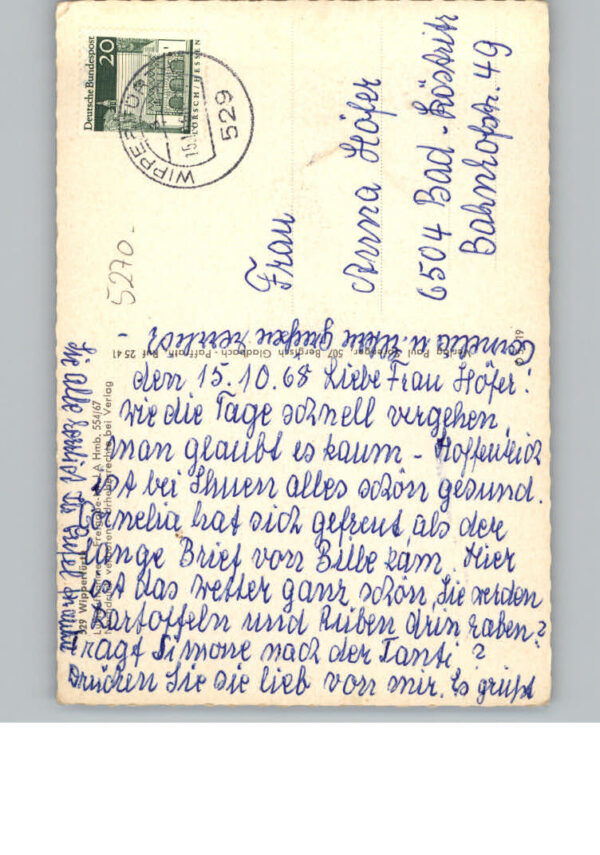 Deutsche Bundespost
20
LORSCH/HESSEN
WIPPERFÜRTH
529
5270-
Frau
Anna Höfer
6504 Bad-Köstritz
Bahnhofstr. 49
den 15.10.68 Liebe Frau Höfer!
Wie die Tage schnell vergehen,
man glaubt es kaum - Hoffentlich
ist bei Ihnen alles schön gesund.
Cornelia hat sich gefreut, als der
lange Brief von Bille kam. Hier
ist das Wetter ganz schön, Sie werden
Kartoffeln und Rüben drin haben?
Fragt Simone nach der Tanti?
Drücken Sie sie lieb von mir. Es grüßt
Sie alle
Cornelia u. grüßen herzlich
Verlag Paul 507 Bergisch Gladbach - Paffrath, Ruf 25 41
529 Wipperfürth
Hmb. 554/67
bei Verlag